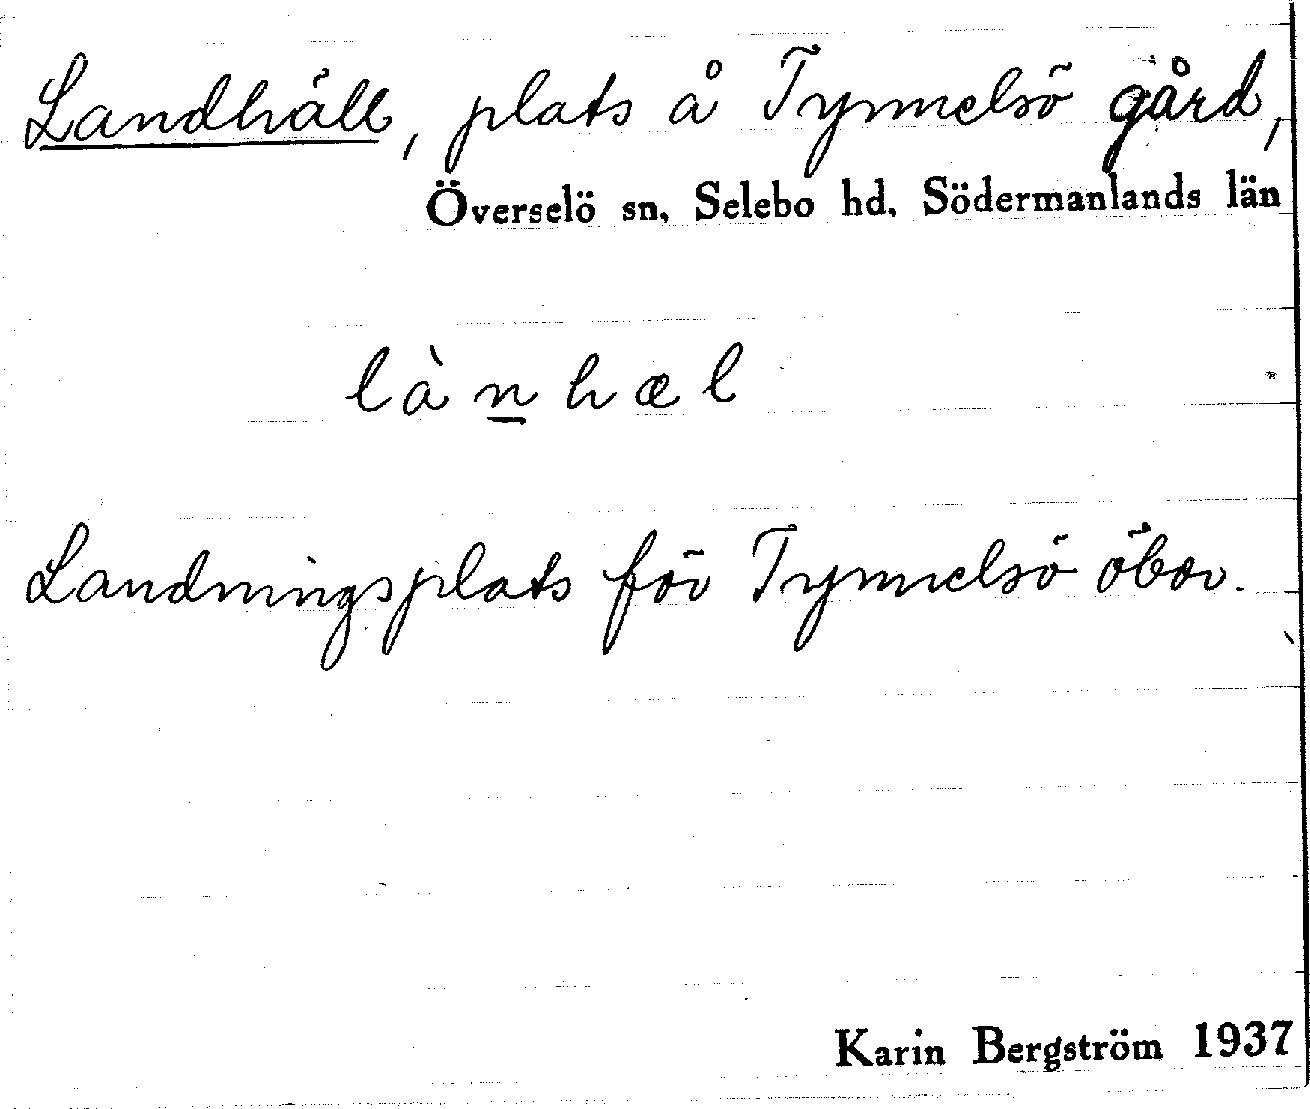 Landhäll, plats å Tynnelsö gård,
Överselö sn, Selebo hd, Södermanlands län
lànhæl
Landningsplats för Tynnelsö öbor.
Karin Bergström 1937